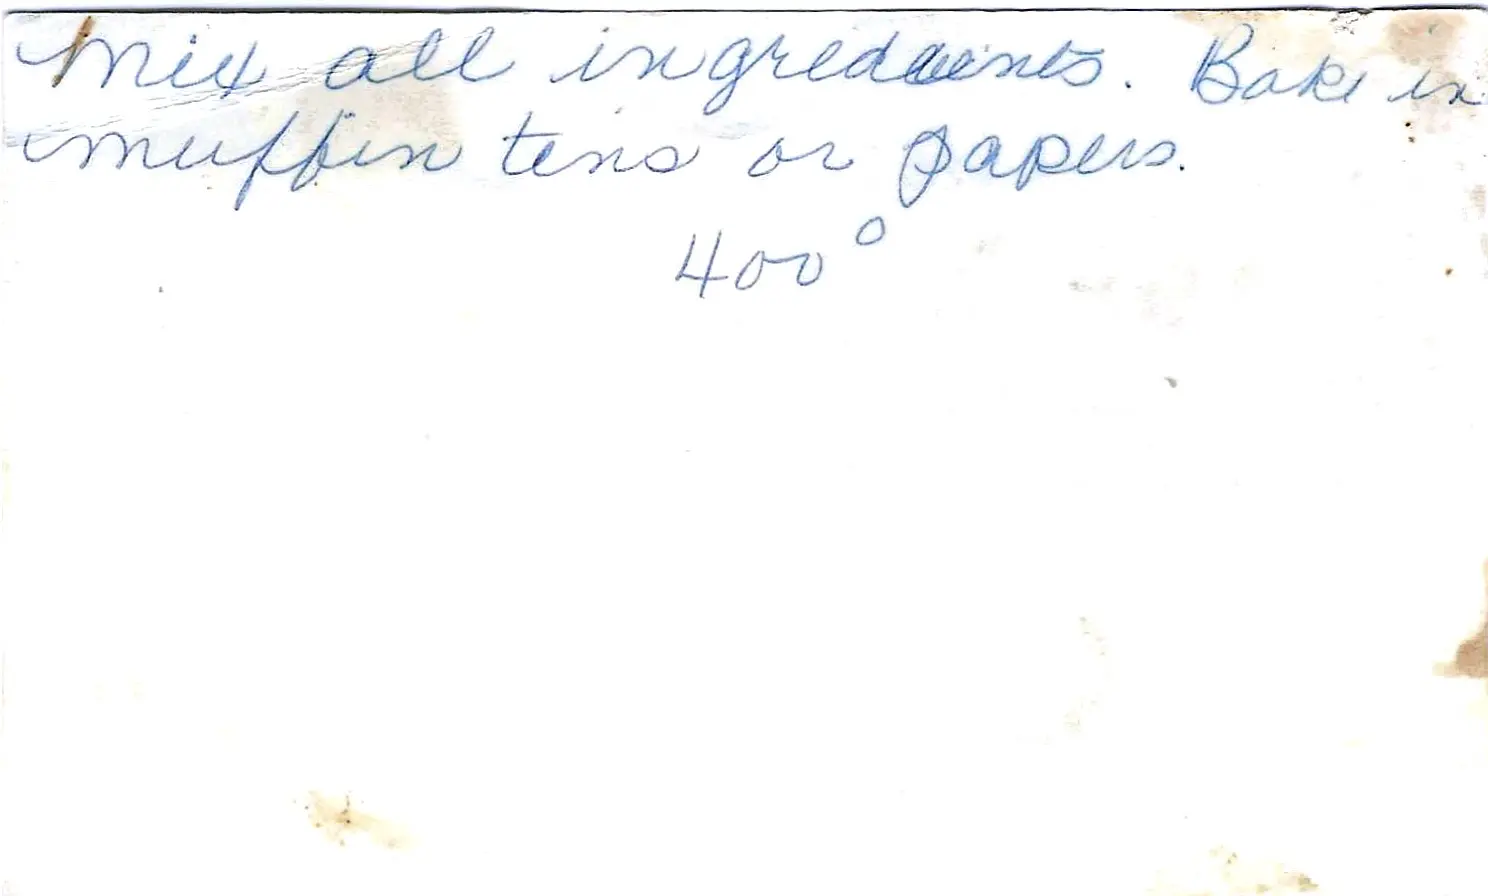 Mix all ingredients. Bake in
muffin tins or papers.
400°